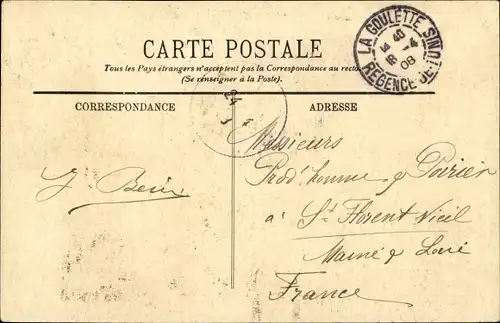 CARTE POSTALE
Tous les Pays étrangers n'acceptent pas la Correspondance au recto
(Se renseigner à la Poste).
LA GOULETTE
RÉGENCE DE TUNIS
18 -4
08
CORRESPONDANCE
ADRESSE
Messieurs
Prod'homme & Poirier
à St Florent Vieil
Maine & Loire
France